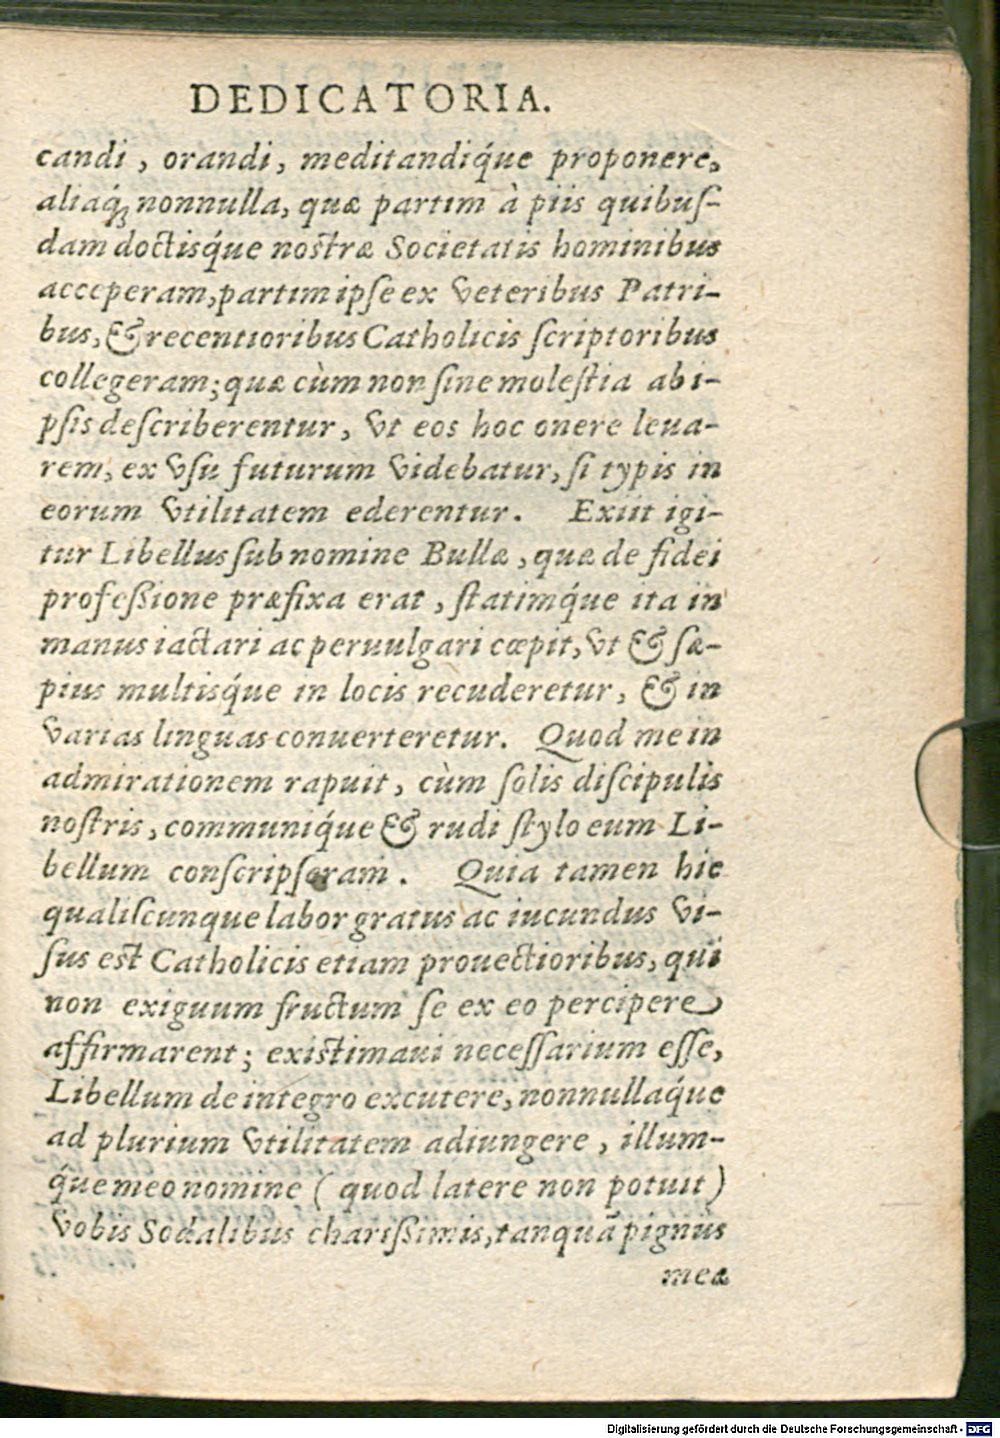 DEDICATORIA.
candi, orandi, meditandiq́ue proponere,
aliaq́ꝫ nonnulla, quæ partim à piis quibuſ-
dam doctisq́ue nostræ Societatis hominibus
acceperam, partim ipſe ex veteribus Patri-
bus, & recentioribus Catholicis ſcriptoribus
collegeram; quæ cùm non ſine moleſtia ab i-
pſis deſcriberentur, vt eos hoc onere leua-
rem, ex vſu futurum videbatur, ſi typis in
eorum vtilitatem ederentur. Exiit igi-
tur Libellus ſub nomine Bullæ, quæ de fidei
profeßione præfixa erat, ſtatimq́ue ita in
manus iactari ac peruulgari cœpit, vt & ſæ-
pius multisq́ue in locis recuderetur, & in
varias linguas conuerteretur. Quod me in
admirationem rapuit, cùm ſolis diſcipulis
noſtris, communiq́ue & rudi ſtylo eum Li-
bellum conſcripſeram. Quia tamen hic
qualiſcunque labor gratus ac iucundus vi-
ſus est Catholicis etiam prouectioribus, qui
non exiguum fructum ſe ex eo percipere
affirmarent; existimaui neceſſarium eſſe,
Libellum de integro excutere, nonnullaq́ue
ad plurium vtilitatem adiungere, illum-
q́ue meo nomine (quod latere non potuit)
vobis Sodalibus charißimis, tanquã pignus
meæ
Digitalisierung gefördert durch die Deutsche Forschungsgemeinschaft - DFG